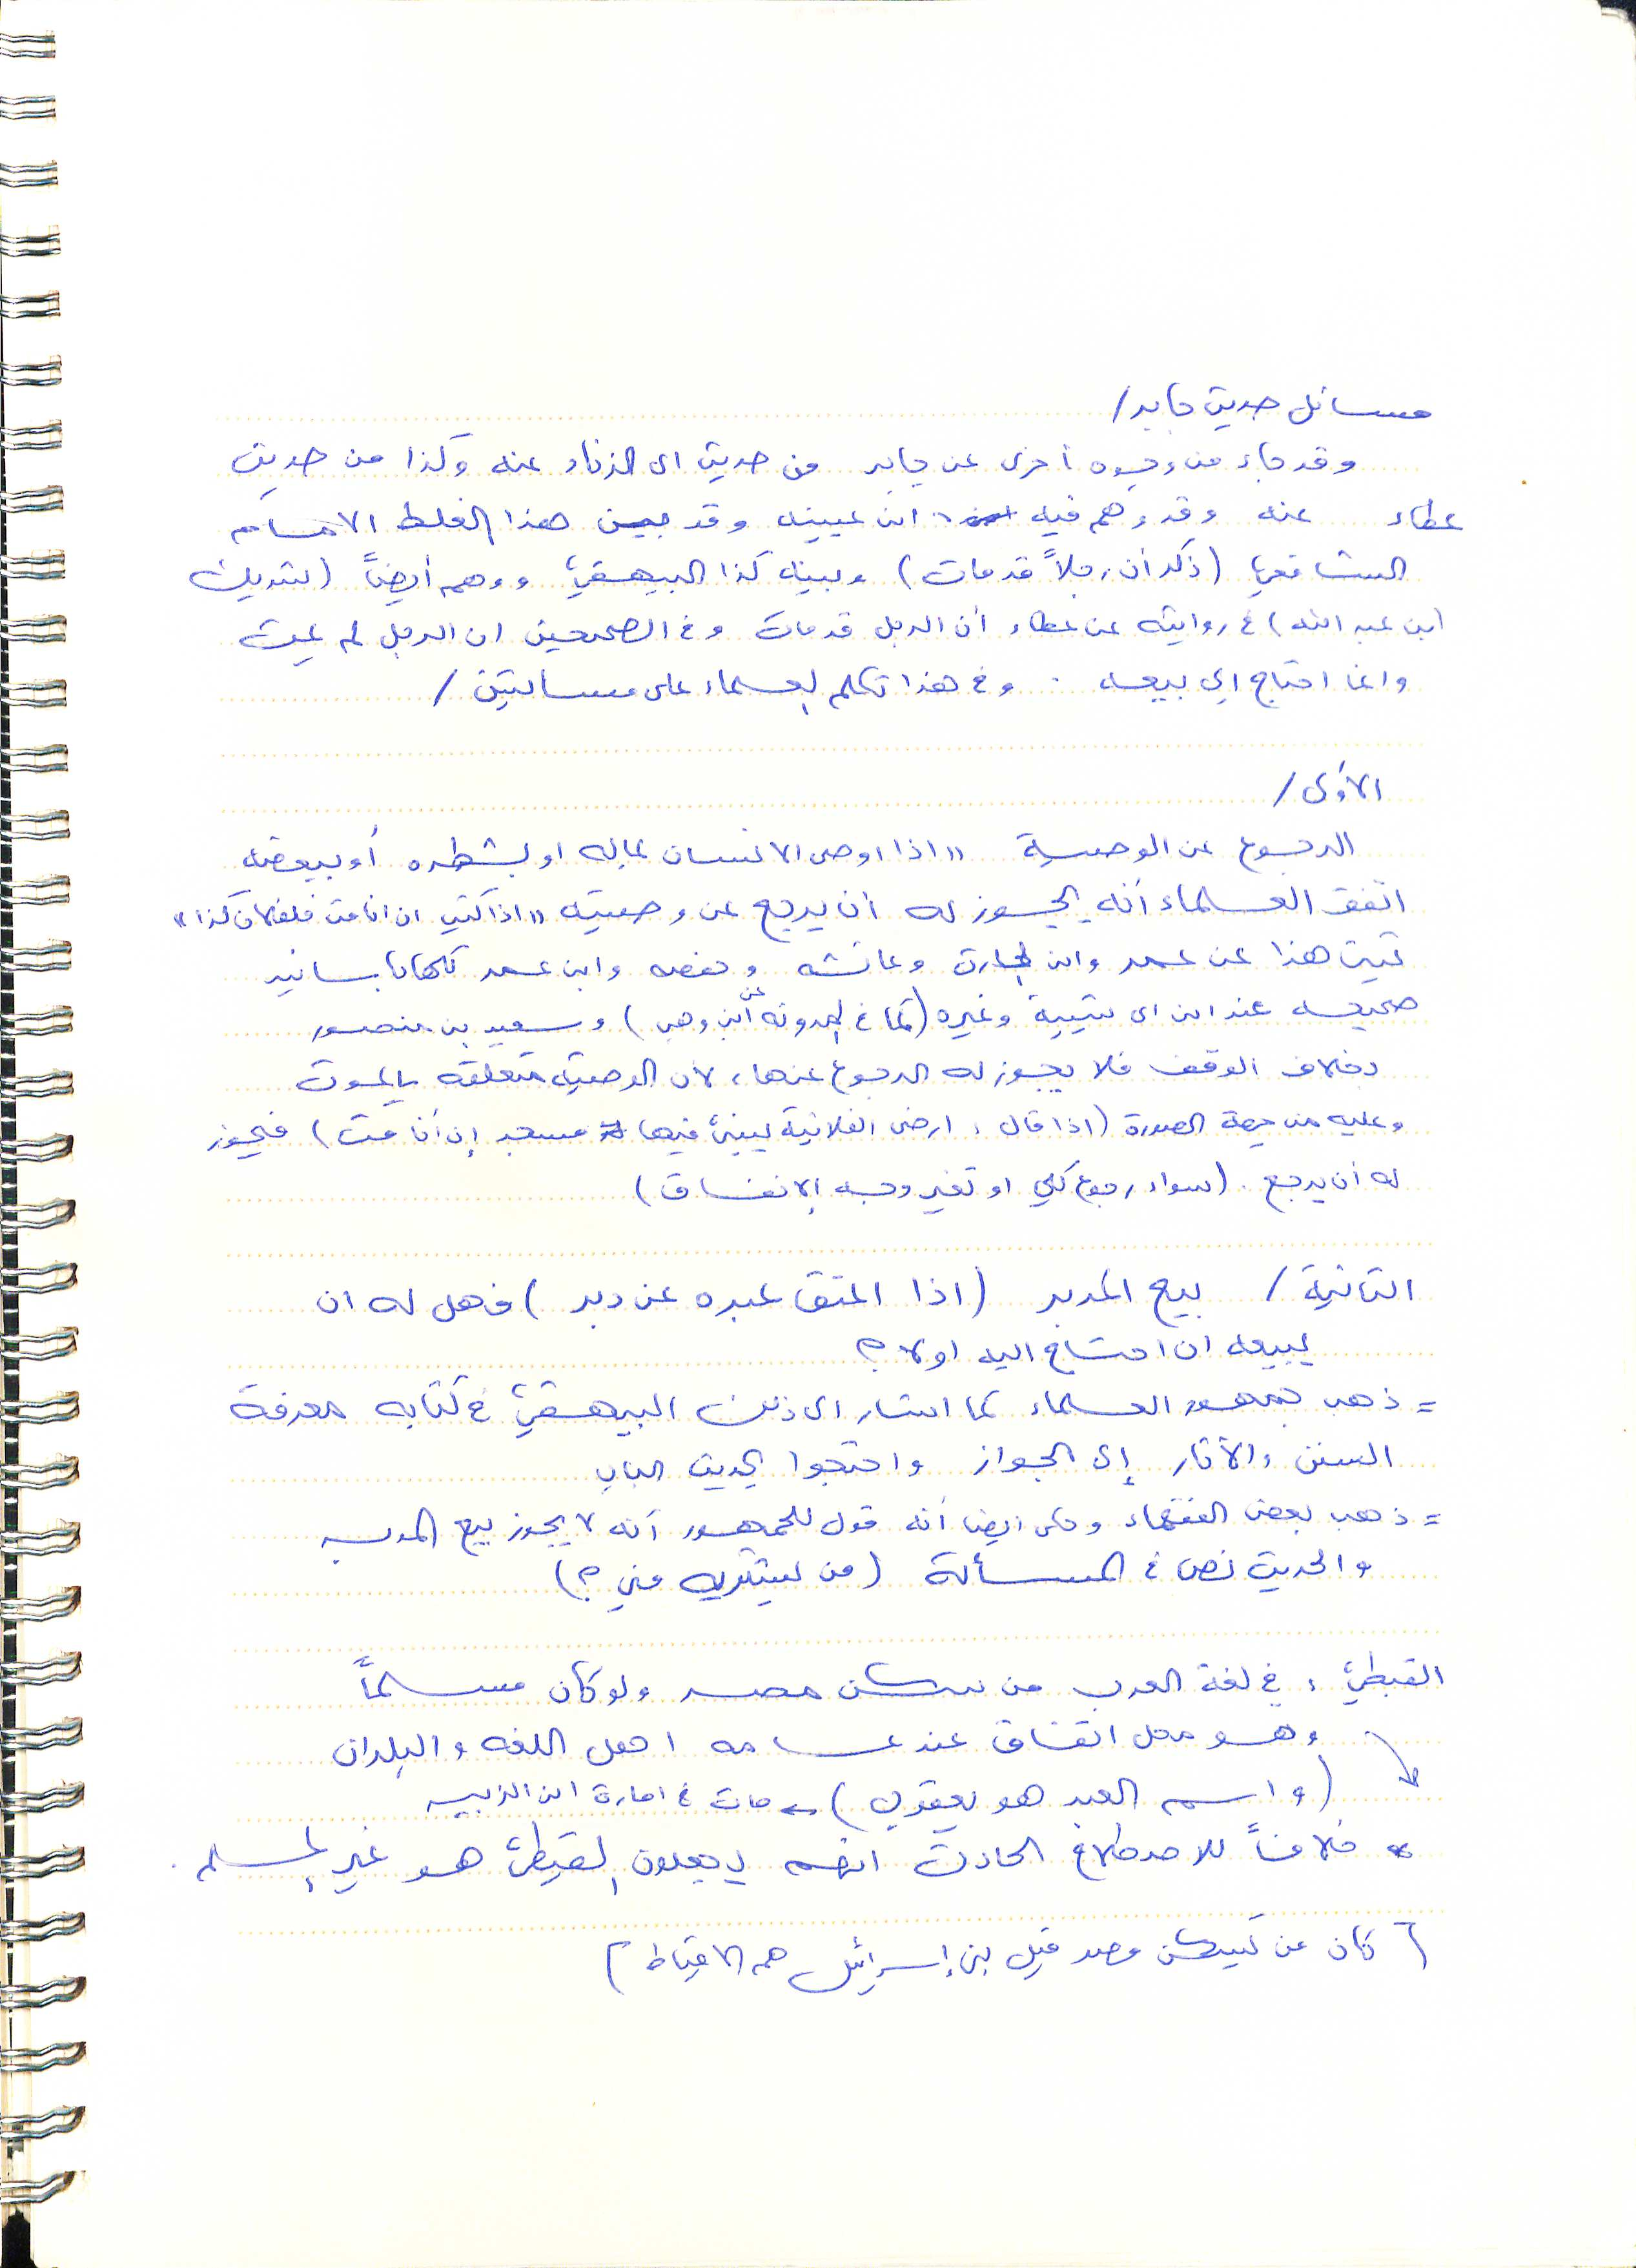 مسائل حديث جابر /
وقد جاء من وجوه أخرى عن جابر من حديث ابي الزناد عنه وكذا من حديث
عطاء عنه وقد وَهم فيه ابن عيينه وقد بين هذا الغلط الامام
الشافعيُّ (ذكر أن رجلاً قد مات) وبينه كذا البيهقيُّ ووهم أيضاً (شريك
ابن عبد الله) في روايته عن عطاء أن الرجل قد مات وفي الصحيحين ان الرجل لم يمت
وانما احتاج إلى بيعه . وفي هذا تكلم العلماء على مسالتين /
الأولى /
الرجوع عن الوصية "اذا اوصى الانسان بماله او بشطره أو ببعضه
اتفق العلماء أنه يجوز له أن يرجع عن وصيته "اذا كتب ان انا مت فلفلان كذا"
ثبت هذا عن عمر وابن وعائشه وحفصه وابن عمر كلها باسانيد
صحيحه عند ابن ابي شيبة وغيره (كما في المدونه عن ابن وهب) وسعيد بن منصور
وخلاف الوقف فلا يجوز له الرجوع عنها، لان الوصية متعلقه بالموت
وعليه من جهة الصورة (اذا قال : ارضي الفلانية يبنىٰ فيها مسجد إن أنا مت) فيجوز
له أن يرجع . (سواء رجوع كلي او تغير وجه الإنفاق)
الثانية / بيع المُدبر (اذا اعتق عبده عن دبر) فهل له ان
يبيعه ان احتاج اليه اولا ؟
= ذهب جمهور العلماء كما اشار الى ذلك البيهقيُّ في كتابه معرفة
السنن والآثار إلى الجواز واحتجوا بحديث الباب
= ذهب بعض الفقهاء وحكي ايضا أنه قول للجمهور أنه لا يجوز بيع المدبر
والحديث نص في المسألة (من يشتريه مني ؟)
القبطيُّ : في لغة العرب من سكن مصر ولو كان مسلماً
وهو محل اتفاق عند عامه اهل اللغه والبلدان
(واسم العبد هو يعقوب) ← مات في امارة ابن الزبير
* خلافاً للاصطلاح الحادث انهم يجعلون القبطيُّ هو غير المسلم .
[كان من يسكن مصر قبل بني إسرائيل هم الاقباط]